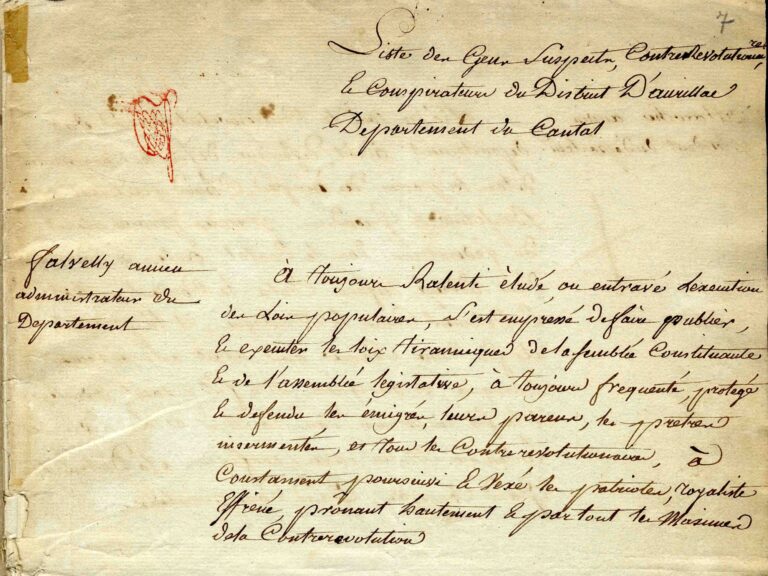 7
Liste des Gens Suspects, Contre Revolutionaires,
& Conspirateurs du District D'aurillac
Departement du Cantal
falvelly ancien
administrateur du
Departement
à toujours Ralenti éludé ou entravé Lexecution
des Loix populaires, s'est empressé de faire publier,
& executer les loix tiranniques de lassemblée Constituante
& de l'assemblée législative, à toujours frequenté protégé
& defendu les émigrés, leurs parens, les pretres
insermentés, et tous les Contrerevolutionaires, à
Constament poursuivi & Vexé les patriotes, royaliste
Effréné, prônant hautement & partout les Maximes
de la Contrerevolution